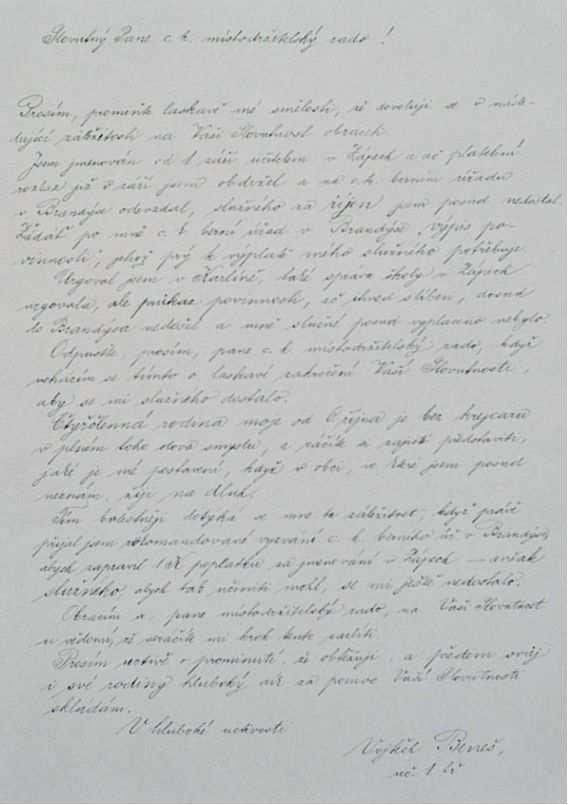 Slovutný Pane c. k. místodržitelský rado!
Prosím, promiňte laskavě mé smělosti, že dovoluji se v násle-
dující záležitosti na Vaši Slovutnost obraceti.
Jsem jmenován od 1. září učitelem v Zápech a ač platební
rozkaz již v září jsem obdržel a na c. k. berním úřadu
v Brandýse odevzdal, služného za říjen jsem posud nedostal.
Žádáť po mně c. k. berní úřad v Brandýse „výpis po-
vinnosti“, jehož prý k výplatě mého služného potřebuje.
Urgoval jsem v Karlíně, také správa školy v Zápech
urgovala, ale průkaz povinnosti, ač ihned slíben, dosud
do Brandýsa nedošel a mně služné posud vyplaceno nebylo.
Odpusťte, prosím, pane c. k. místodržitelský rado, když
ucházím se tímto o laskavé zakročení Vaší Slovutnosti,
aby se mi služného dostalo.
Čtyřčlenná rodina moje od října je bez krejcaru
v plném toho slova smyslu, a ráčíte si zajisté představiti,
jaké je mé postavení, když v obci, ve které jsem posud
neznám, žiji na dluh.
Tím bolestněji dotýká se mne ta záležitost, když právě
přijal jsem rekomandované vyzvání c. k. berního úř. v Brandýse,
abych zapravil 1 K poplatku za jmenování v Zápech — avšak
služného, abych tak učiniti mohl, se mi ještě nedostalo.
Obracím se, pane místodržitelský rado, na Vaši Slovutnost
u vědomí, že neráčíte mi krok tento zazlíti.
Prosím uctivě o prominutí, že obtěžuji, a předem svůj
i své rodiny hluboký dík za pomoc Vaší Slovutnosti
skládám.
V hluboké uctivosti
Vojtěch Beneš,
uč. I. tř.